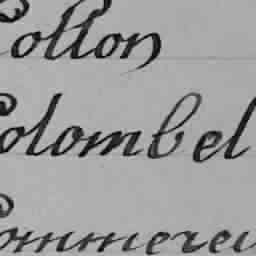 Collon
Colombel
Commerce